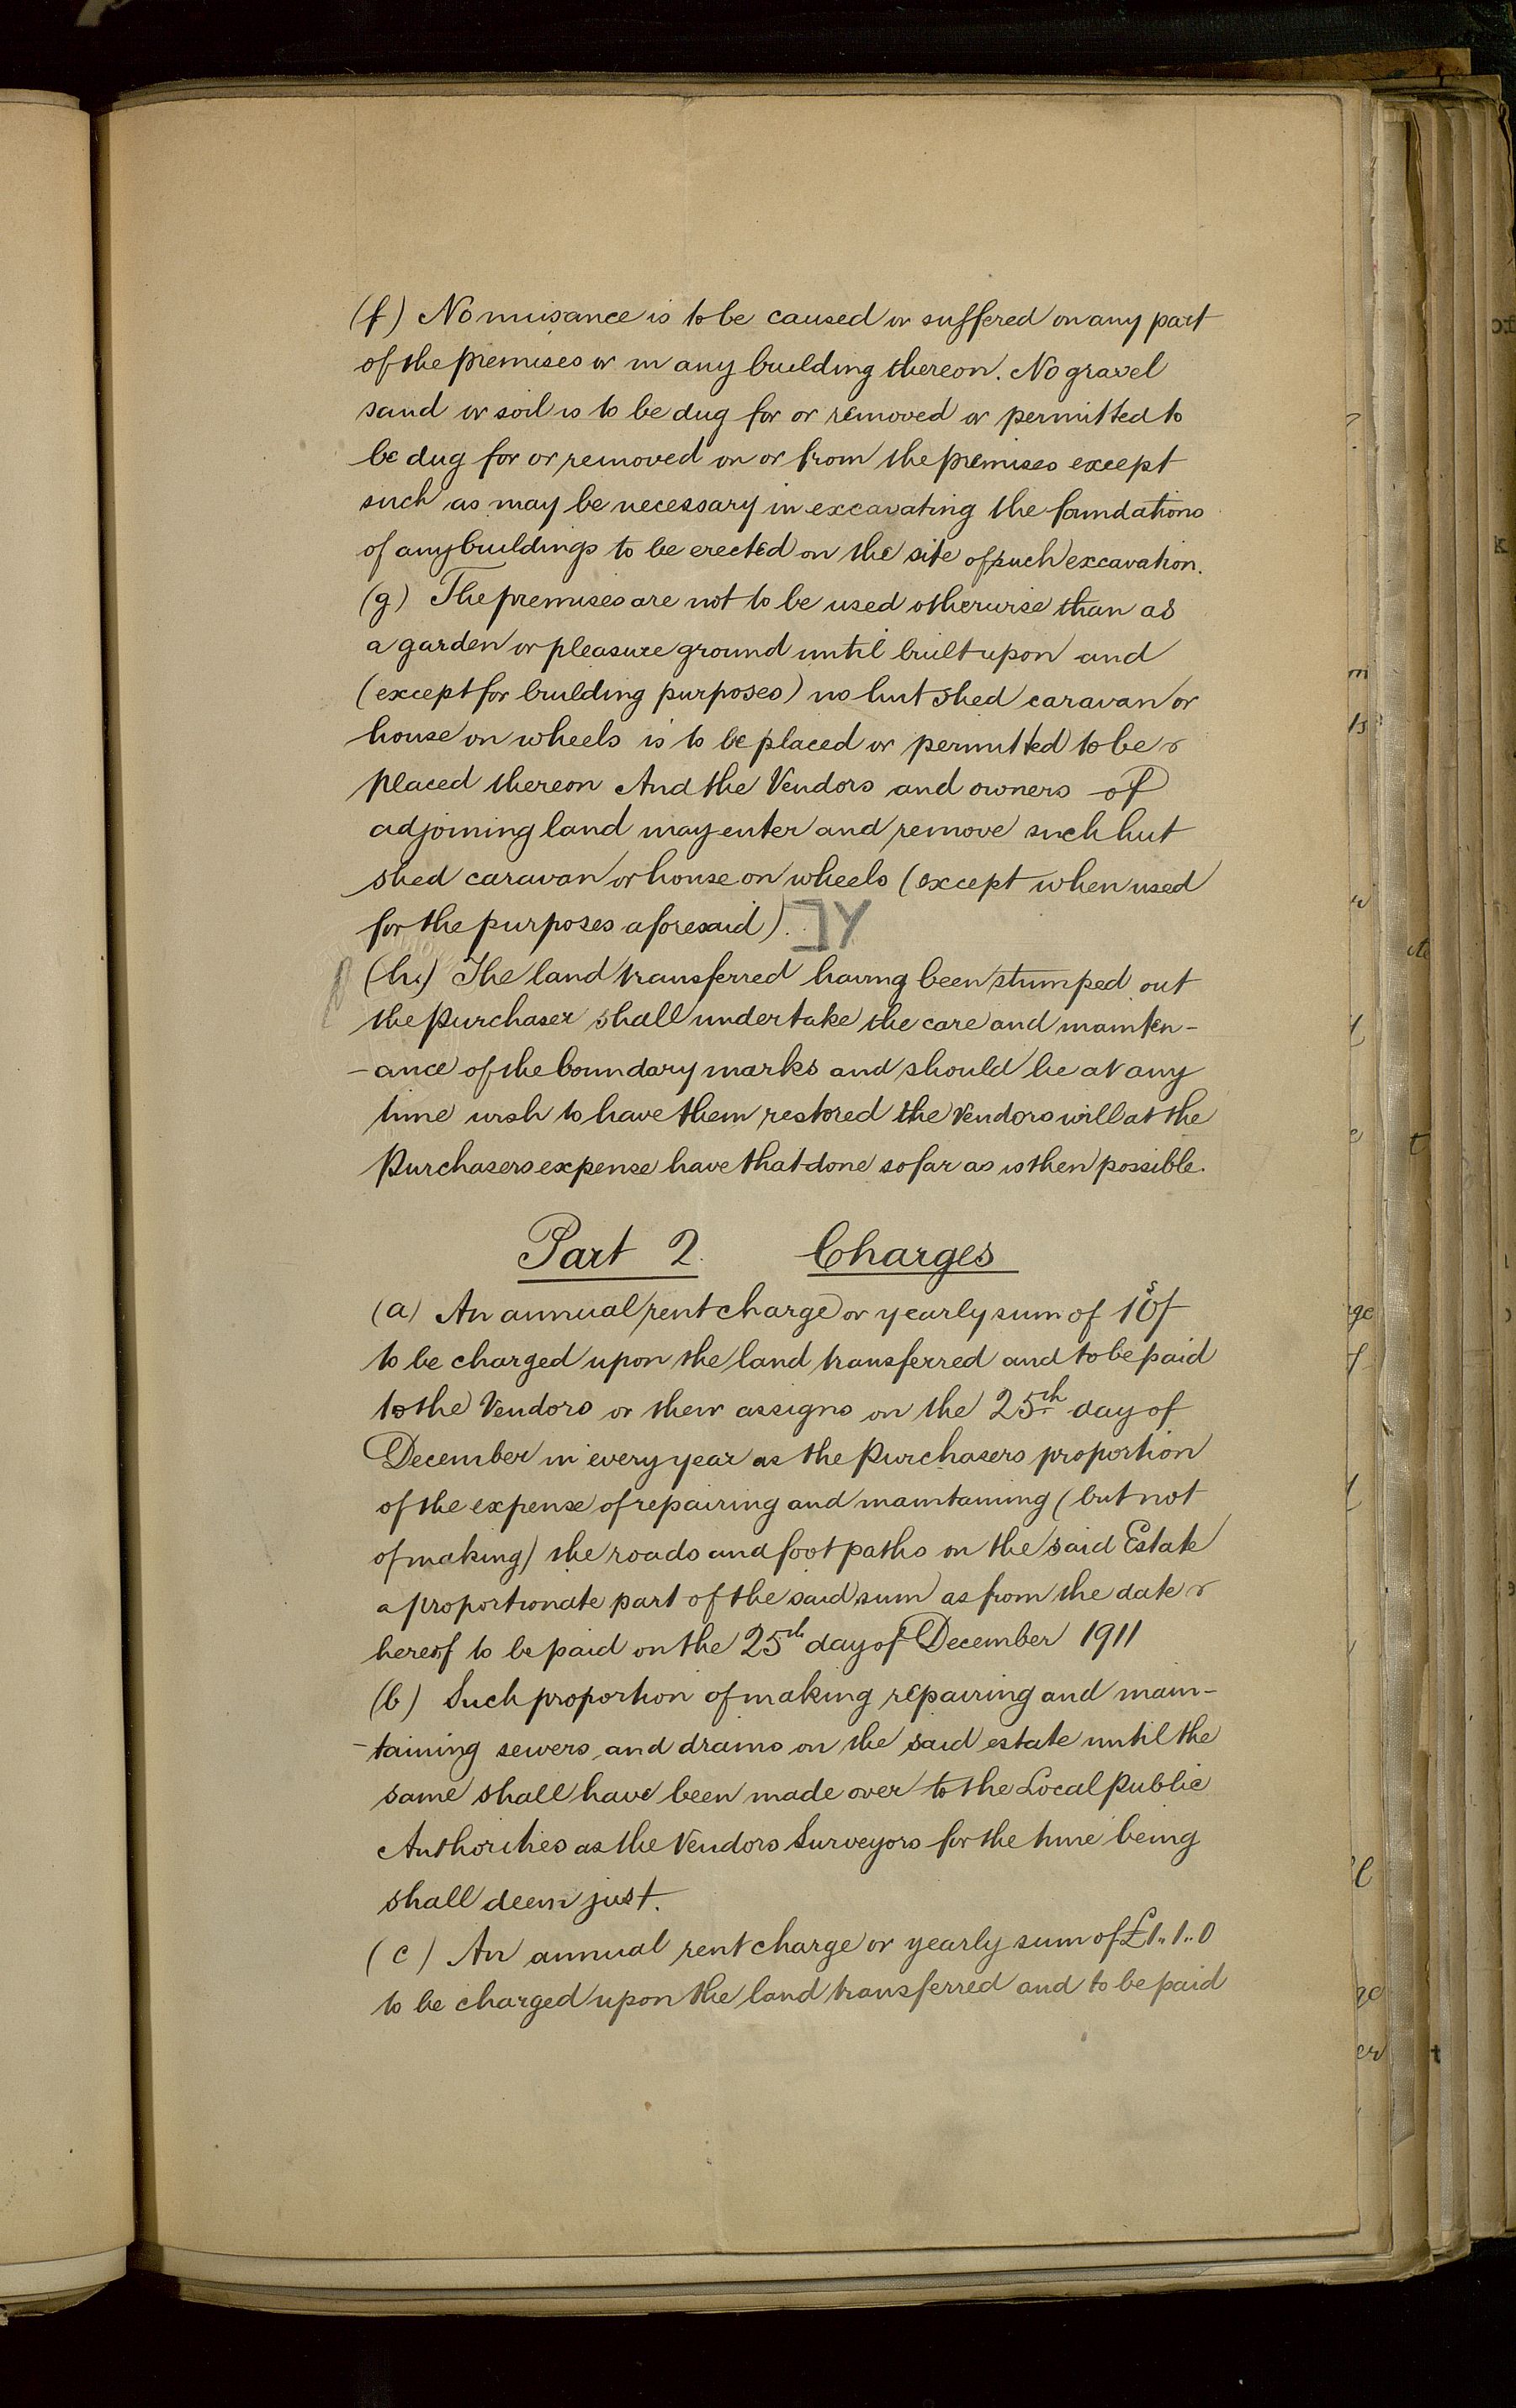 (f) No nuisance is to be caused or suffered on any part
of the premises or in any building thereon. No gravel
sand or soil is to be dug for or removed or permitted to
be dug for or removed on or from the premises except
such as may be necessary in excavating the foundations
of any buildings to be erected on the site of such excavation.
(g) The premises are not to be used otherwise than as
a garden or pleasure ground until built upon and
(except for building purposes) no hut shed caravan or
house on wheels is to be placed or permitted to be
placed thereon And the Vendors and owners of
adjoining land may enter and remove such hut
shed caravan or house on wheels (except when used
for the purposes aforesaid).
(h.) The land transferred having been stumped out
the Purchaser shall undertake the care and mainten-
-ance of the boundary marks and should he at any
time wish to have them restored the Vendors will at the
Purchasers expense have that done so far as is then possible.
Part 2. Charges
(a) An annual rent charge or yearly sum of 10s/-
to be charged upon the land transferred and to be paid
to the Vendors or their assigns on the 25th day of
December in every year as the Purchasers proportion
of the expense of repairing and maintaining (but not
of making) the roads and foot paths on the said Estate
a proportionate part of the said sum as from the date
hereof to be paid on the 25th day of December 1911
(b) Such proportion of making repairing and main-
-taining sewers and drains on the said estate until the
same shall have been made over to the Local Public
Authorities as the Vendors Surveyors for the time being
shall deem just.
(c) An annual rent charge or yearly sum of £1.. 1.. 0
to be charged upon the land transferred and to be paid